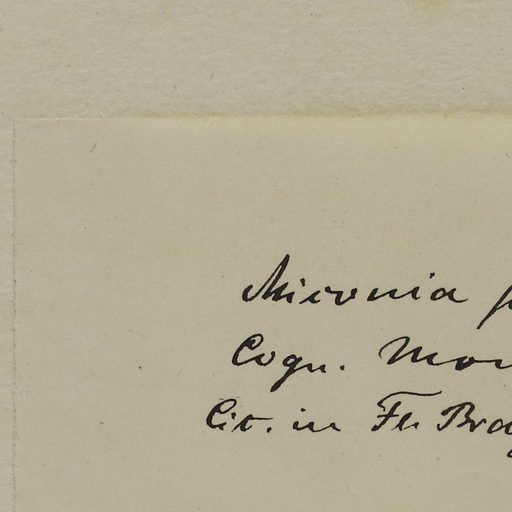 Miconia
Cogn.
Cit. in Fl. Bras